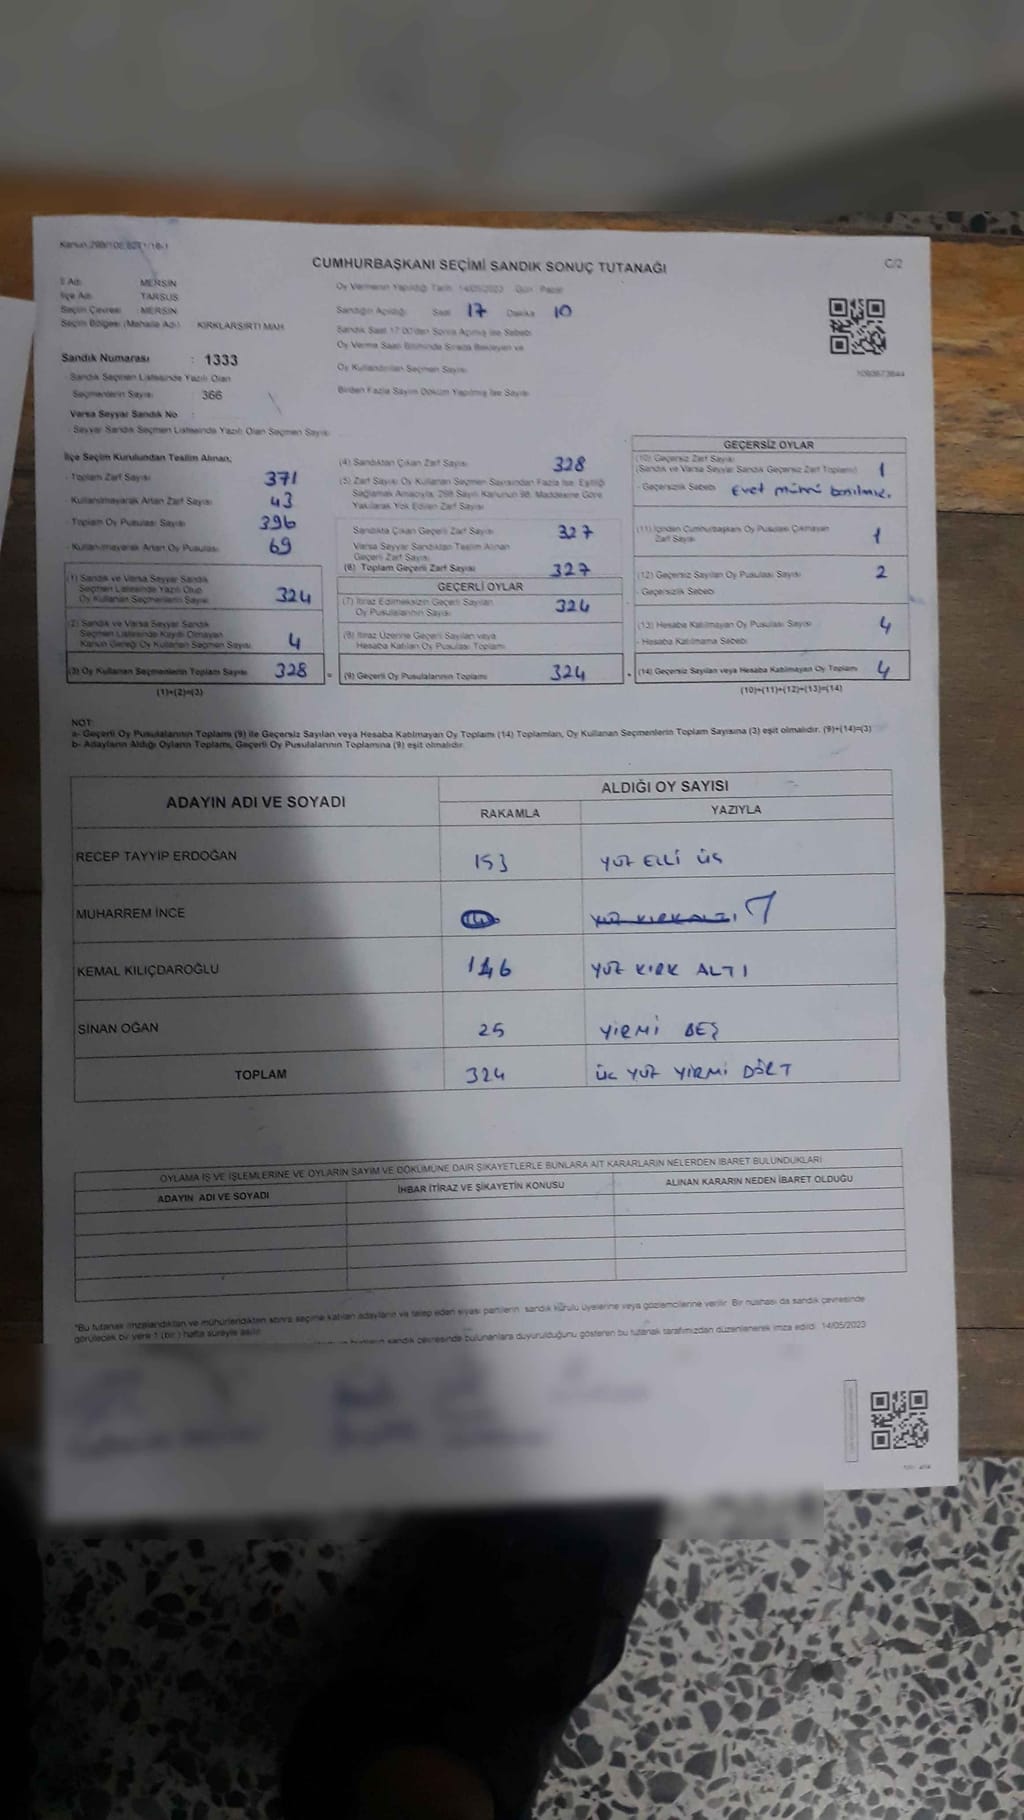 Kanun:298/105,6271/16-1
CUMHURBAŞKANI SEÇİMİ SANDIK SONUÇ TUTANAĞI
C/2
İl Adı: MERSİN
İlçe Adı: TARSUS
Seçim Çevresi MERSİN
Seçim Bölgesi (Mahalle Adı): KIRKLARSIRTI MAH
Oy Vermenin Yapıldığı Tarih: 14/05/2023 Gün: Pazar
Sandığın Açıldığı: Saat 17 Dakika 10
Sandık Saat 17:00'den Sonra Açılmış İse Sebebi
Oy Verme Saati Bitiminde Sırada Bekleyen ve
Oy Kullandırılan Seçmen Sayısı
Birden Fazla Sayım Döküm Yapılmış İse Sayısı
Sandık Numarası : 1333
- Sandık Seçmen Listesinde Yazılı Olan
Seçmenlerin Sayısı 366
Varsa Seyyar Sandık No
- Seyyar Sandık Seçmen Listesinde Yazılı Olan Seçmen Sayısı
İlçe Seçim Kurulundan Teslim Alınan,
- Toplam Zarf Sayısı 371
- Kullanılmayarak Artan Zarf Sayısı 43
- Toplam Oy Pusulası Sayısı 396
- Kullanılmayarak Artan Oy Pusulası 69
(1) Sandık ve Varsa Seyyar Sandık
Seçmen Listesinde Yazılı Olup
Oy Kullanan Seçmenlerin Sayısı 324
(2) Sandık ve Varsa Seyyar Sandık
Seçmen Listesinde Kayıtlı Olmayan
Kanun Gereği Oy Kullanan Seçmen Sayısı 4
(3) Oy Kullanan Seçmenlerin Toplam Sayısı 328
(1)+(2)=(3)
(4) Sandıktan Çıkan Zarf Sayısı 328
(5) Zarf Sayısı Oy Kullanan Seçmen Sayısından Fazla İse, Eşitliği
Sağlamak Amacıyla, 298 Sayılı Kanunun 98. Maddesine Göre
Yakılarak Yok Edilen Zarf Sayısı
Sandıkta Çıkan Geçerli Zarf Sayısı 327
Varsa Seyyar Sandıktan Teslim Alınan
Geçerli Zarf Sayısı
(6) Toplam Geçerli Zarf Sayısı 327
GEÇERLİ OYLAR
(7) İtiraz Edilmeksizin Geçerli Sayılan
Oy Pusulalarının Sayısı 324
(8) İtiraz Üzerine Geçerli Sayılan veya
Hesaba Katılan Oy Pusulası Toplamı
(9) Geçerli Oy Pusulalarının Toplamı 324
GEÇERSİZ OYLAR
(10) Geçersiz Zarf Sayısı
(Sandık ve Varsa Seyyar Sandık Geçersiz Zarf Toplamı) 1
- Geçersizlik Sebebi Evet mührü basılmış.
(11) İçinden Cumhurbaşkanı Oy Pusulası Çıkmayan
Zarf Sayısı 1
(12) Geçersiz Sayılan Oy Pusulası Sayısı 2
- Geçersizlik Sebebi
(13) Hesaba Katılmayan Oy Pusulası Sayısı 4
- Hesaba Katılmama Sebebi
(14) Geçersiz Sayılan veya Hesaba Katılmayan Oy Toplamı 4
(10)+(11)+(12)+(13)=(14)
NOT:
a- Geçerli Oy Pusulalarının Toplamı (9) ile Geçersiz Sayılan veya Hesaba Katılmayan Oy Toplamı (14) Toplamları, Oy Kullanan Seçmenlerin Toplam Sayısına (3) eşit olmalıdır. (9)+(14)=(3)
b- Adayların Aldığı Oyların Toplamı, Geçerli Oy Pusulalarının Toplamına (9) eşit olmalıdır.
ADAYIN ADI VE SOYADI ALDIĞI OY SAYISI
RAKAMLA YAZIYLA
RECEP TAYYİP ERDOĞAN 153 YÜZ ELLİ ÜÇ
MUHARREM İNCE YÜZ KIRKALTI
KEMAL KILIÇDAROĞLU 146 YÜZ KIRK ALTI
SİNAN OĞAN 25 YİRMİ BEŞ
TOPLAM 324 ÜÇ YÜZ YİRMİ DÖRT
OYLAMA İŞ VE İŞLEMLERİNE VE OYLARIN SAYIM VE DÖKÜMÜNE DAİR ŞİKAYETLERLE BUNLARA AİT KARARLARIN NELERDEN İBARET BULUNDUKLARI
ADAYIN ADI VE SOYADI İHBAR İTİRAZ VE ŞİKAYETİN KONUSU ALINAN KARARIN NEDEN İBARET OLDUĞU
*Bu tutanak imzalandıktan ve mühürlendikten sonra seçime katılan adayların ve talep eden siyasi partilerin sandık kurulu üyelerine veya gözlemcilerine verilir. Bir nüshası da sandık çevresinde
görülecek bir yere 1 (bir) hafta süreyle asılır.
sandık çevresinde bulunanlara duyurulduğunu gösteren bu tutanak tarafımızdan düzenlenerek imza edildi. 14/05/2023